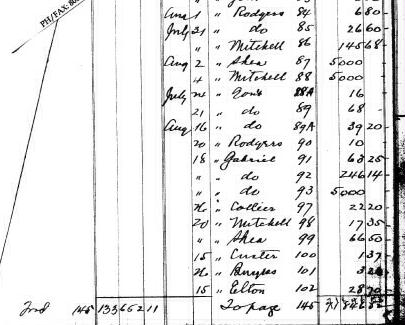 PH/FAX: 
Aug 1 " Rodgers 84 6 80
July 31 " do 85 26 60
" " Mitchell 86 145 68
Aug 2 " Shea 87 50 00
4 " Mitchell 88 50 00
July 24 " 88A 16
21 " do 89 68 -
Aug 16 " do 89A 39 20
20 " Rodgers 90 10
18 " Gabriel 91 63 25
" " do 92 246 14
" " do 93 50 00
26 " Collier 97 22 20
20 " Mitchell 98 17 35
" " Shea 99 66 50
15 " Custer 100 1 37
26 " 101
15 " Elton 102 28 70
Ford 145 13 365 211 To page 145